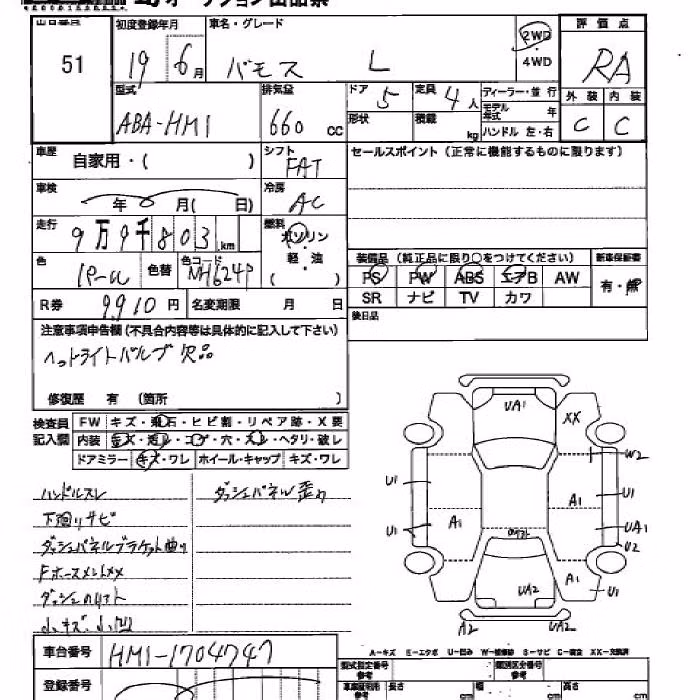 オークション出品票
出品番号 51
初度登録年月 19 6月
車名・グレード バモス L
2WD ・ 4WD
評価点 RA
型式 ABA-HM1
排気量 660 CC
ドア 5 定員 4人
形状 積載 kg
ディーラー・並行
モデル年式 年
ハンドル 左・右
外装 C 内装 C
車歴 自家用・( )
シフト FAT
セールスポイント(正常に機能するものに限ります)
車検 年 月( 日)
冷房 AC
走行 9万9千803km
燃料 ガソリン・軽・油 ( )
色 パール 色替 色コード NH624P
装備品(純正品に限り○をつけてください) 新車保証書
PS PW ABS エアB AW 有・無
SR ナビ TV カワ
R券 9910円 名変期限 月 日
後日品
注意事項申告欄(不具合内容等は具体的に記入して下さい)
ヘッドライトバルブ欠品
修復歴 有 (箇所 )
検査員記入欄 FW キズ・飛石・ヒビ割・リペア跡・X要
内装 キズ・汚レ・コゲ・穴・スレ・ヘタリ・破レ
ドアミラー キズ・ワレ ホイール・キャップ キズ・ワレ
ハンドルスレ ダッシュパネル歪ミ
下廻リサビ
ダッシュパネルブラケット曲り
小キズ、小凹
UA1 XX
W2
U1 A1 U1
U1 A1 UA1
U2
UA2 A1 U1
A2 UA2
A-キズ E-エクボ U-凹み W-補修跡 S-サビ C-腐食 XX-交換済
車台番号 HM1-1704747
登録番号
型式指定番号 参考 類別区分番号 参考
車庫証明用 参考 長さ cm 幅 cm 高さ cm